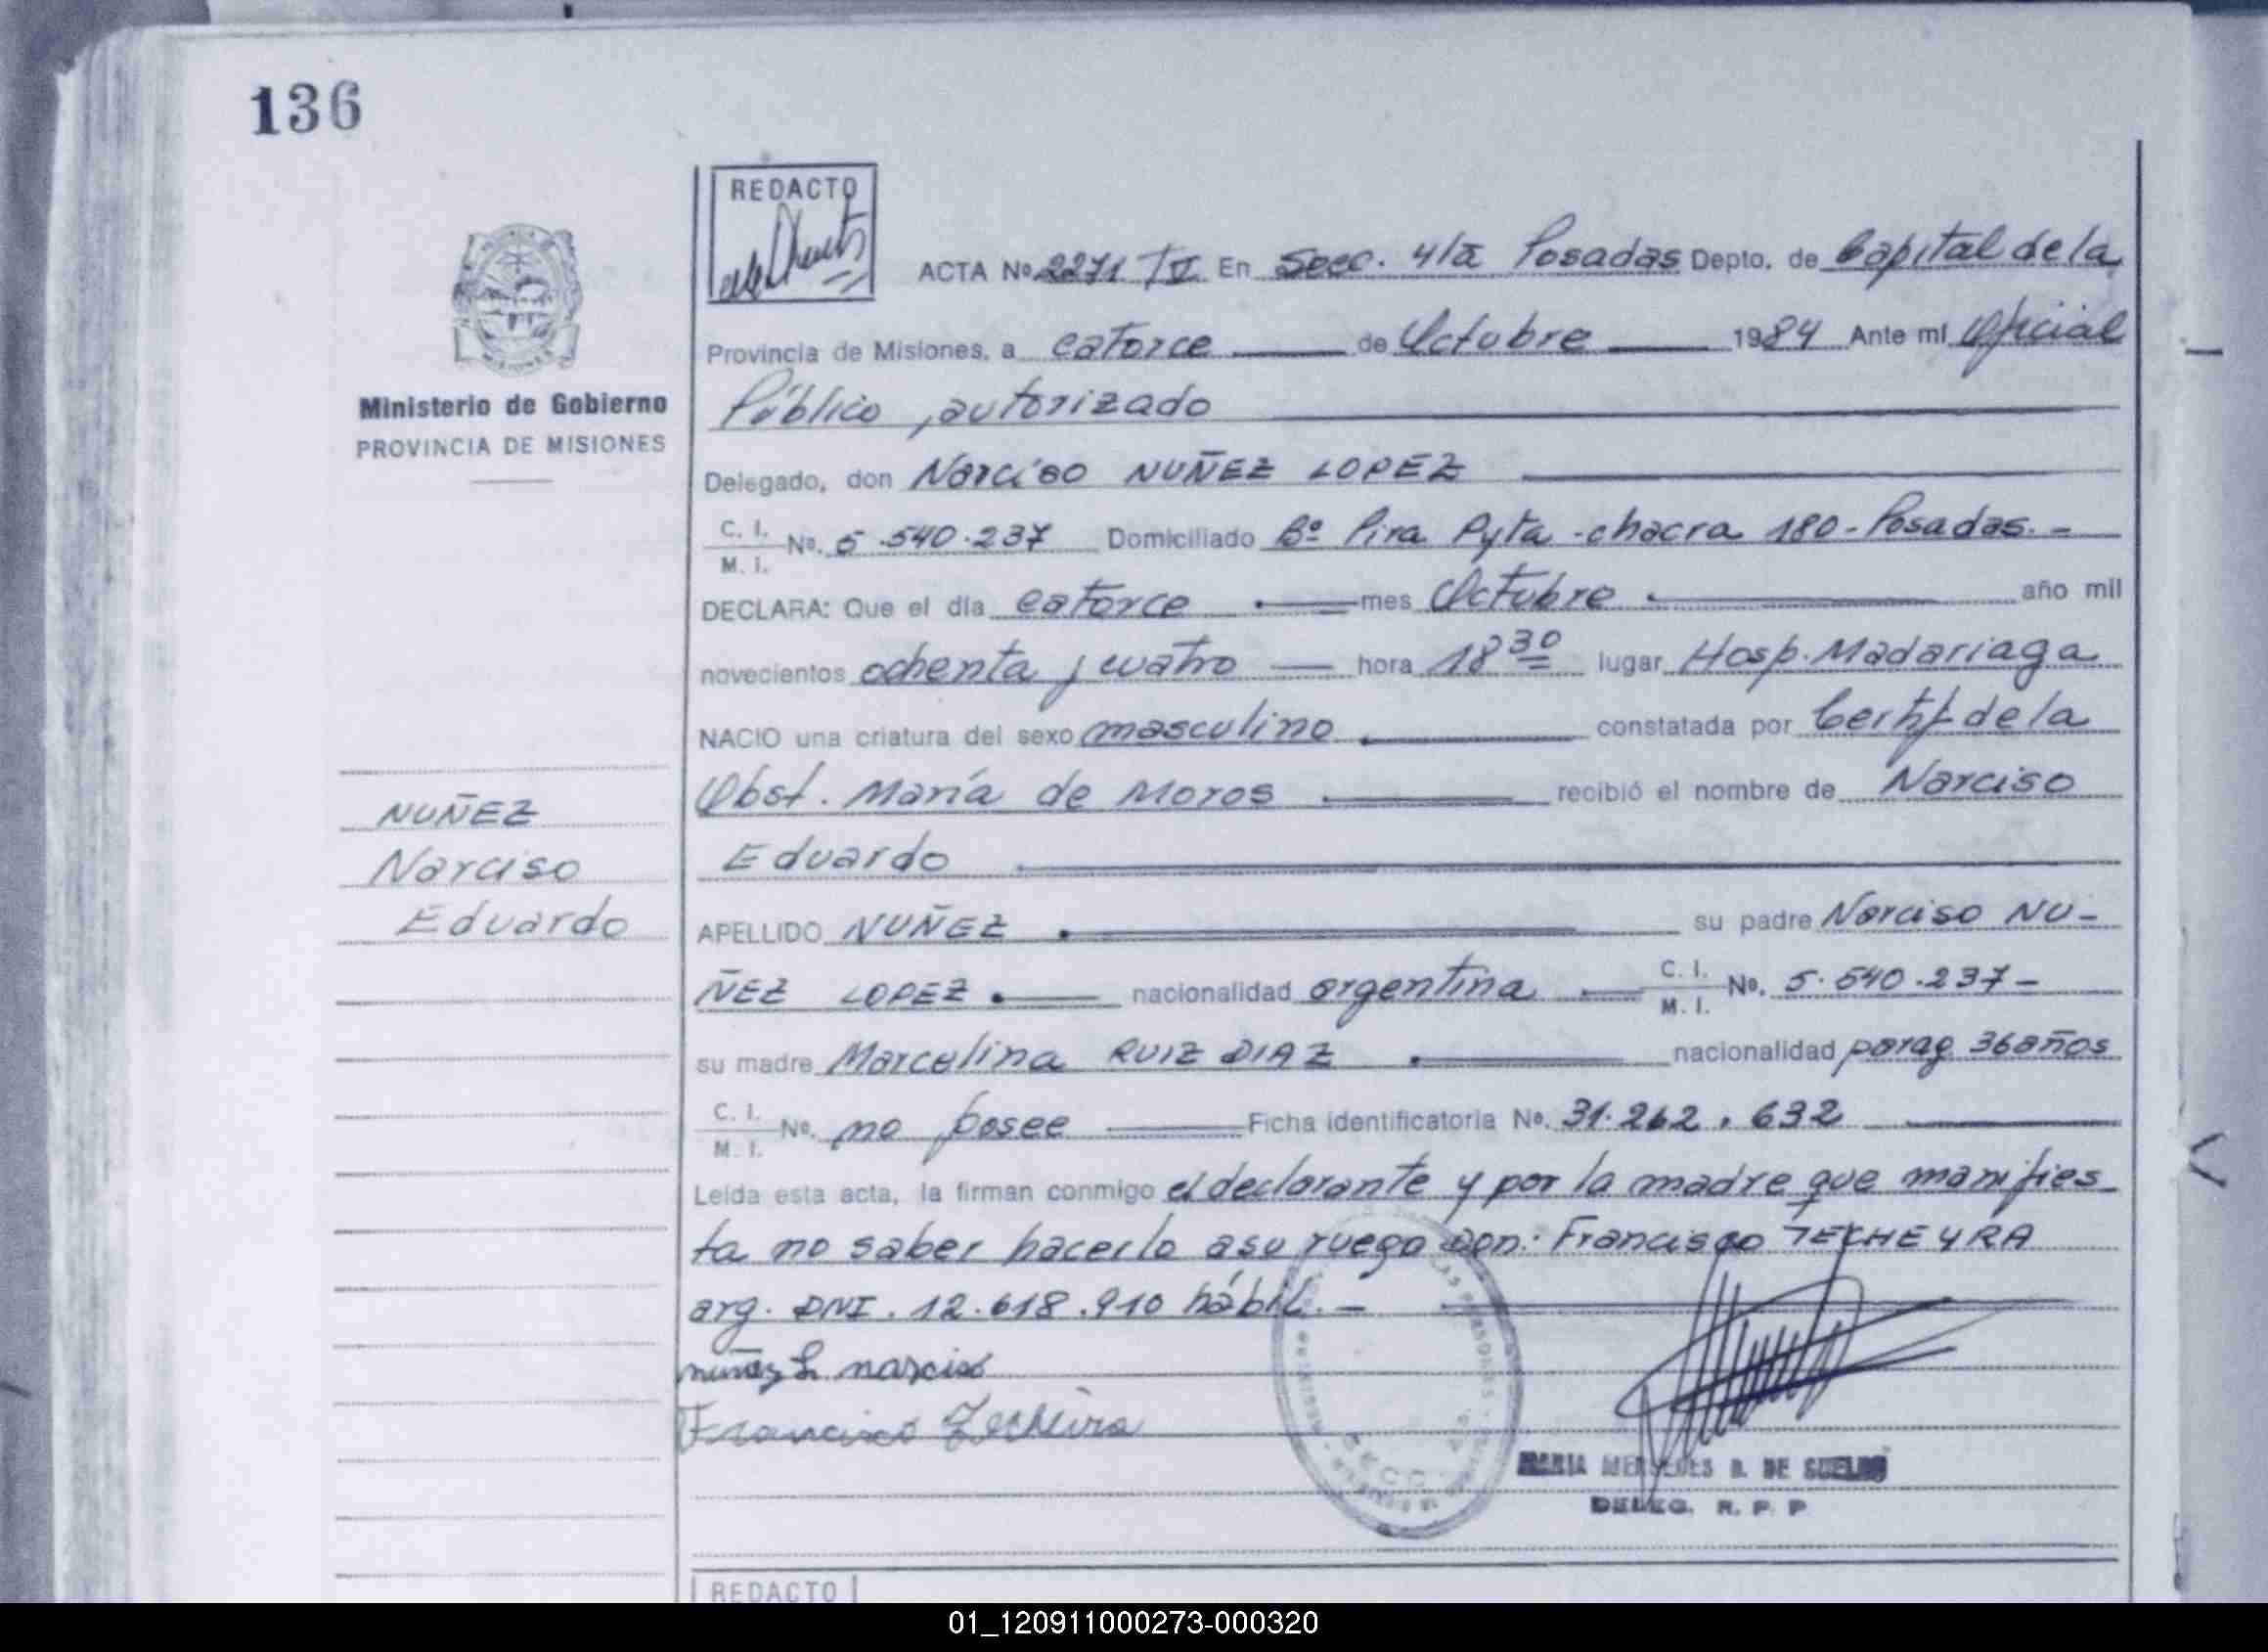 136
REDACTO
ACTA No 2271 T V En Secc. 4/a Posadas Depto. de Capital de la
Provincia de Misiones, a catorce de Octubre 1984 Ante mi Oficial
Ministerio de Gobierno
PROVINCIA DE MISIONES
Público, autorizado
Delegado, don Narciso NUÑEZ LOPEZ
C. I. M. I. No. 5.540.237 Domiciliado Bº Pira Pyta - chacra 180 - Posadas. -
DECLARA: Que el día catorce mes Octubre año mil
novecientos ochenta y cuatro hora 18 30 lugar Hosp. Madariaga
NACIO una criatura del sexo masculino constatada por Certif. de la
Obst. María de Moros recibió el nombre de Narciso
Eduardo
NUÑEZ
Narciso
Eduardo
APELLIDO NUÑEZ su padre Narciso NU-
ÑEZ LOPEZ nacionalidad argentina C. I. M. I. No. 5.540.237 -
su madre Marcelina RUIZ DIAZ nacionalidad parag. 36 años
C. I. M. I. No. no posee Ficha identificatoria No. 31.262.632
Leída esta acta, la firman conmigo el declarante y por la madre que manifies
ta no saber hacerlo a su ruego don: Francisco TECHEYRA
arg. DNI. 12.618.910 hábil. -
nuñez L narciso
Francisco Techeira
MARIA MERCEDES B. DE SUELDO
DELEG. R. P. P
REDACTO
01_120911000273-000320